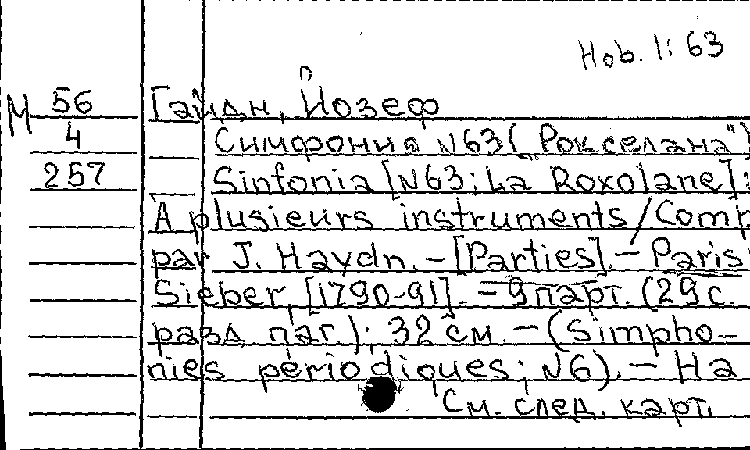 Hob. I: 63
M 56 Гайдн, Йозеф
4 Симфония №63 ("Рокселана")
257 Sinfonia [№63; La Roxolane]:
A plusieurs instruments / Comp
par J. Haydn. - [Parties]. - Paris:
Sieber, [1790-91]. - 9 парт. (29 с.
разд. паг.); 32 см. - (Simpho-
nies périodiques; №6). - На
См. след. карт.